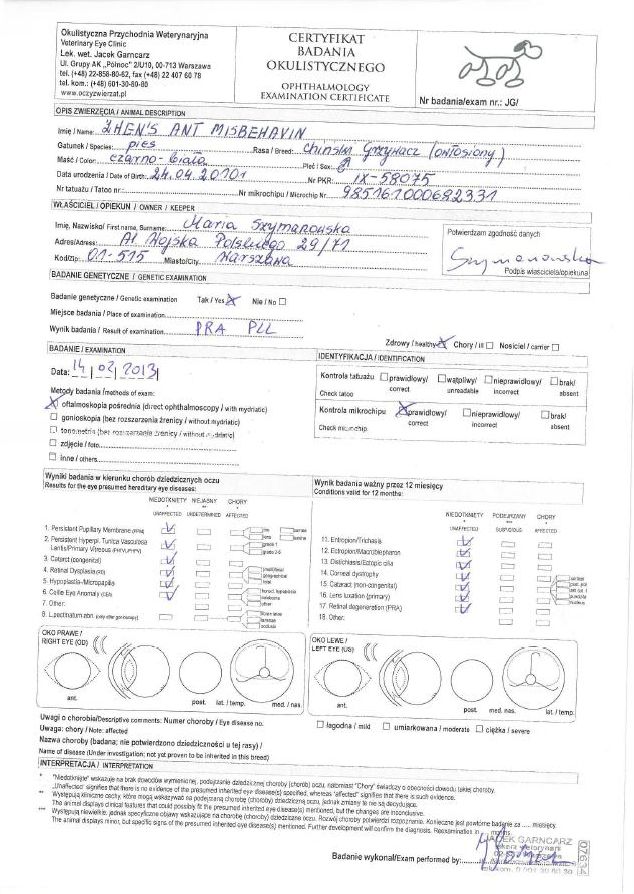 Okulistyczna Przychodnia Weterynaryjna
Veterinary Eye Clinic
Lek. wet. Jacek Garncarz
Ul. Grupy AK „Północ" 2/U10, 00-713 Warszawa
tel. (+48) 22-858-80-62, fax (+48) 22 407 60 78
tel. kom.: (+48) 601-30-80-80
www.oczyzwierzat.pl
CERTYFIKAT
BADANIA
OKULISTYCZNEGO
OPHTHALMOLOGY
EXAMINATION CERTIFICATE
Nr badania/exam nr.: JG/
OPIS ZWIERZĘCIA / ANIMAL DESCRIPTION
Imię / Name: ZHEN'S ANT MISBEHAVIN
Gatunek / Species: pies Rasa / Breed: Chiński Grzywacz (owłosiony)
Maść / Color: czarno-biała Płeć / Sex: ♂
Data urodzenia / Date of Birth: 24.04.2010 Nr PKR: IX-58075
Nr tatuażu / Tatoo nr: Nr mikrochipu / Microchip Nr 985161000682331
WŁAŚCICIEL / OPIEKUN / OWNER / KEEPER
Imię, Nazwisko/ First name, Surname: Maria Szymanowska
Adres/Adress: Al. Wojska Polskiego 29/71
Kod/Zip: 01-515 Miasto/City: Warszawa
Potwierdzam zgodność danych
Szymanowska
Podpis właściciela/opiekuna
BADANIE GENETYCZNE / GENETIC EXAMINATION
Badanie genetyczne / Genetic examination Tak / Yes Nie / No
Miejsce badania / Place of examination
Wynik badania / Result of examination PRA PLL
Zdrowy / healthy Chory / ill Nosiciel / carrier
BADANIE / EXAMINATION
Data: 14 02 2013
Metody badania /methods of exam:
oftalmoskopia pośrednia (direct ophthalmoscopy / with mydriatic)
gonioskopia (bez rozszerzenia źrenicy / without mydriatic)
tonometria (bez rozszerzenia źrenicy / without mydriatic)
zdjęcie / foto
inne / others
IDENTYFIKACJA / IDENTIFICATION
Kontrola tatuażu prawidłowy/ wątpliwy/ nieprawidłowy/ brak/
Check tatoo correct unreadable incorrect absent
Kontrola mikrochipu prawidłowy/ nieprawidłowy/ brak/
Check microchip correct incorrect absent
Wyniki badania w kierunku chorób dziedzicznych oczu
Results for the eye presumed hereditary eye diseases:
NIEDOTKNIĘTY NIEJASNY CHORY
UNAFFECTED UNDETERMINED AFFECTED
1. Persistent Pupillary Membrane (PPM)
2. Persistent Hyperpl. Tunica Vasculosa
Lentis/Primary Vitreous (PHTVL/PHPV)
3. Catarct (congenital)
4. Retinal Dysplasia (RD)
5. Hypoplastia-Micropapila
6. Collie Eye Anomaly (CEA)
7. Other:
8. L.pectinatum abn. (only after gonioscopy)
Wynik badania ważny przez 12 miesięcy
Conditions valid for 12 months:
NIEDOTKNIĘTY PODEJRZANY CHORY
UNAFFECTED SUSPICIOUS AFFECTED
11. Entropion/Trichasis
12. Ectropion/Macroblepharon
13. Distichiasis/Ectopic cilia
14. Corneal dystrophy
15. Cataract (non-congenital)
16. Lens luxation (primary)
17. Retinal degeneration (PRA)
18. Other:
OKO PRAWE /
RIGHT EYE (OD)
ant. post. lat. / temp. med. / nas.
OKO LEWE /
LEFT EYE (US)
ant. post. med. nas. lat. / temp.
Uwagi o chorobie/Descriptive comments: Numer choroby / Eye disease no.
łagodna / mild umiarkowana / moderate ciężka / severe
Uwaga: chory / Note: affected
Nazwa choroby (badana; nie potwierdzono dziedziczności u tej rasy) /
Name of disease (Under investigation: not yet proven to be inherited in this breed)
INTERPRETACJA / INTERPRETATION
* "Niedotknięty" wskazuje na brak dowodów wymienionej, podejrzanie dziedzicznej choroby (chorób) oczu, natomiast "Chory" świadczy o obecności dowodu takiej choroby.
„Unaffected" signifies that there is no evidence of the presumed inherited eye disease(s) specified, whereas "affected" signifies that there is such evidence.
** Występują kliniczne cechy, które mogą wskazywać na podejrzaną chorobę (choroby) dziedziczną oczu, jednak zmiany te nie są decydujące.
The animal displays clinical features that could possibly fit the presumed inherited eye disease(s) mentioned, but the changes are inconclusive.
*** Występują niewielkie, jednak specyficzne objawy wskazujące na chorobę (choroby) dziedziczną oczu. Rozwój choroby potwierdzi rozpoznanie. Konieczne jest powtórne badanie za ..... miesięcy.
The animal displays minor, but specific signs of the presumed inherited eye disease(s) mentioned. Further development will confirm the diagnosis. Reexamination in ..... months.
Badanie wykonał/Exam performed by:
JACEK GARNCARZ
07634